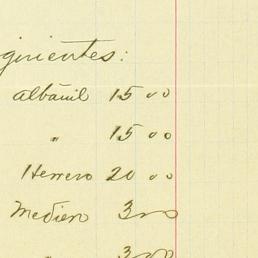 albañil 15 00
" 15 00
Herrero 20 00
3 00
" 3 00